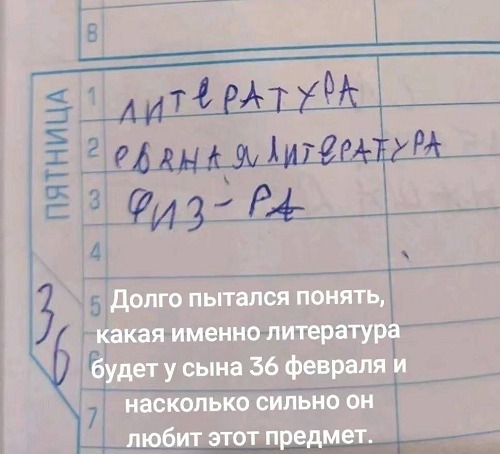 8
ПЯТНИЦА
1 ЛИТЕРАТУРА
2 РВАНАЯ ЛИТЕРАТУРА
3 ФИЗ-РА
4
36
5
6
7
Долго пытался понять,
какая именно литература
будет у сына 36 февраля и
насколько сильно он
любит этот предмет.